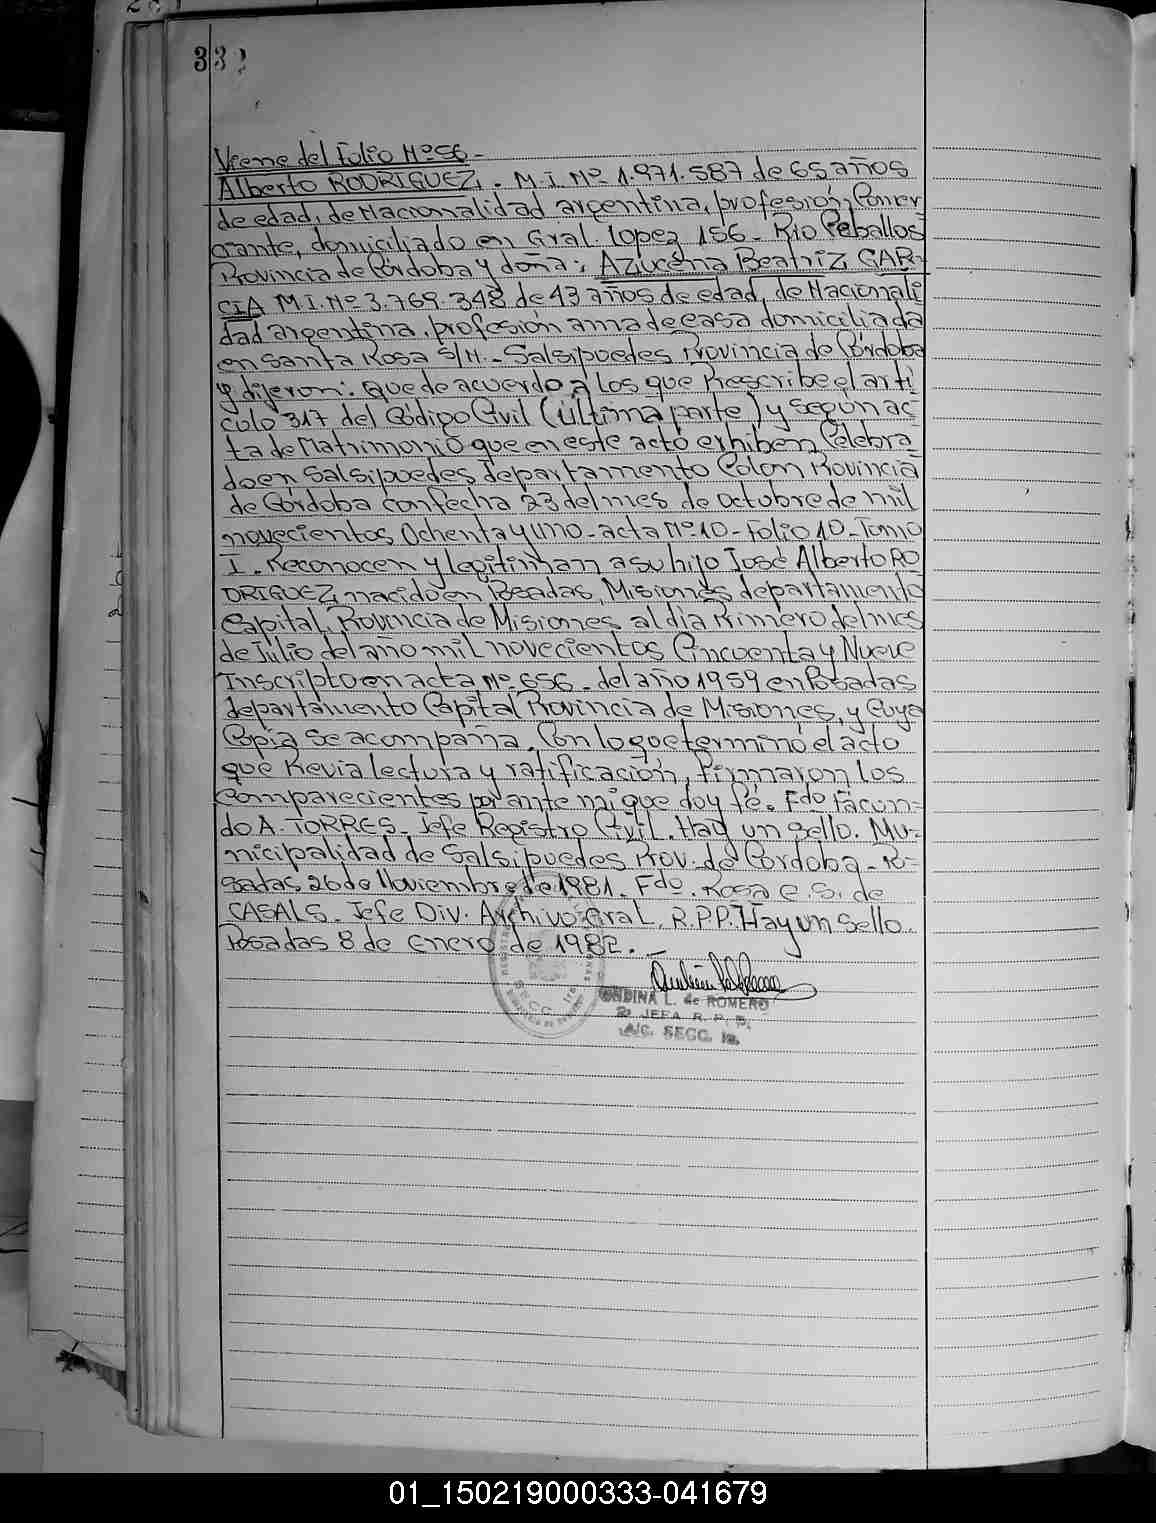 332
Viene del Folio Nº 56 -
Alberto RODRIGUEZ, - M.I. Nº 1.971.587 de 65 años
de edad, de Nacionalidad argentina, profesión, Comer
ciante, domiciliado en Gral. Lopez 156 - Rio Ceballos
Provincia de Córdoba y doña: Azucena Beatriz GAR-
CIA M.I. Nº 3.769.348 de 43 años de edad, de Nacionali
dad argentina, profesión ama de casa domiciliada
en Santa Rosa S/N. - Salsipuedes Provincia de Córdoba
y dijeron: que de acuerdo a los que Prescribe el artí
culo 317 del Código Civil (última parte) y según ac
ta de Matrimonio que en este acto exhiben Celebra
do en Salsipuedes departamento Colon Provincia
de Córdoba con fecha 23 del mes de octubre de mil
novecientos Ochenta y uno - acta Nº 10 - Folio 10 - Tomo
I. Reconocen y legitiman a su hijo José Alberto RO
DRIGUEZ, nacido en Posadas, Misiones departamento
Capital, Provincia de Misiones al día Primero del mes
de Julio del año mil novecientos Cincuenta y Nueve
Inscripto en acta Nº 656 - del año 1959 en Posadas
departamento Capital Provincia de Misiones, y Cuya
Copia se acompaña. Con lo que terminó el acto
que Previa lectura y ratificación, firmaron los
comparecientes por ante mi que doy fé. Fdo Facun-
do A. TORRES - Jefe Registro Civil. Hay un sello. Mu-
nicipalidad de Salsipuedes Prov. de Córdoba - Po-
sadas 26 de Noviembre de 1981. Fdo. Rosa E. S. de
CASALS - Jefe Div. Archivo Gral. R.P.P. Hay un sello.
Posadas 8 de Enero de 1982. -
ONDINA L. de ROMERO
JEFA R. P. P.
A/C. SECC. 1a.
01_150219000333-041679